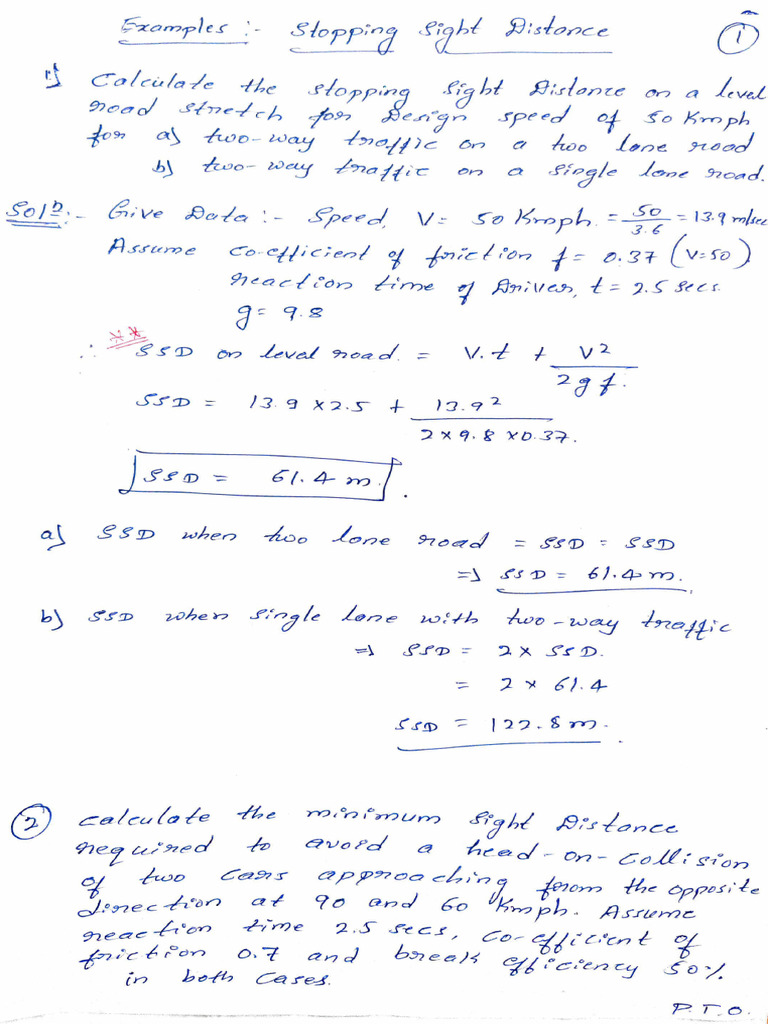 Examples :- Stopping Sight Distance
1
1) Calculate the stopping Sight Distance on a level
road stretch for Design speed of 50 Kmph
for a) two-way traffic on a two lane road
b) two-way traffic on a single lane road.
Solⁿ:- Give Data :- Speed, V = 50 Kmph. = 50/3.6 = 13.9 m/sec
Assume co-efficient of friction f = 0.37 (V=50)
reaction time of Driver, t = 2.5 secs.
g = 9.8
** 
∴ SSD on level road. = V.t + V²/2gf.
SSD = 13.9 x 2.5 + 13.9²/2 x 9.8 x 0.37.
SSD = 61.4 m.
a) SSD when two lane road = SSD = SSD
=> SSD = 61.4 m.
b) SSD when single lane with two-way traffic
=> SSD = 2 x SSD.
= 2 x 61.4
SSD = 122.8 m.
2 calculate the minimum Sight Distance
required to avoid a head-on-collision
of two cars approaching from the opposite
direction at 90 and 60 Kmph. Assume
reaction time 2.5 secs, co-efficient of
friction 0.7 and break efficiency 50%
in both cases.
P.T.O.